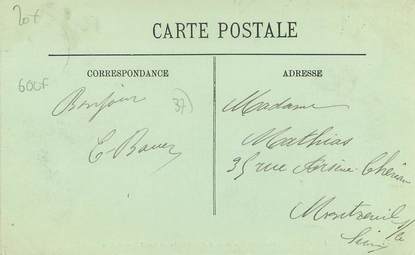 20f
CARTE POSTALE
CORRESPONDANCE
ADRESSE
600F
37
Bonjour
E. Bauer
Madame
Mathias
35 rue Arsène Chéreau
Montreuil s/s